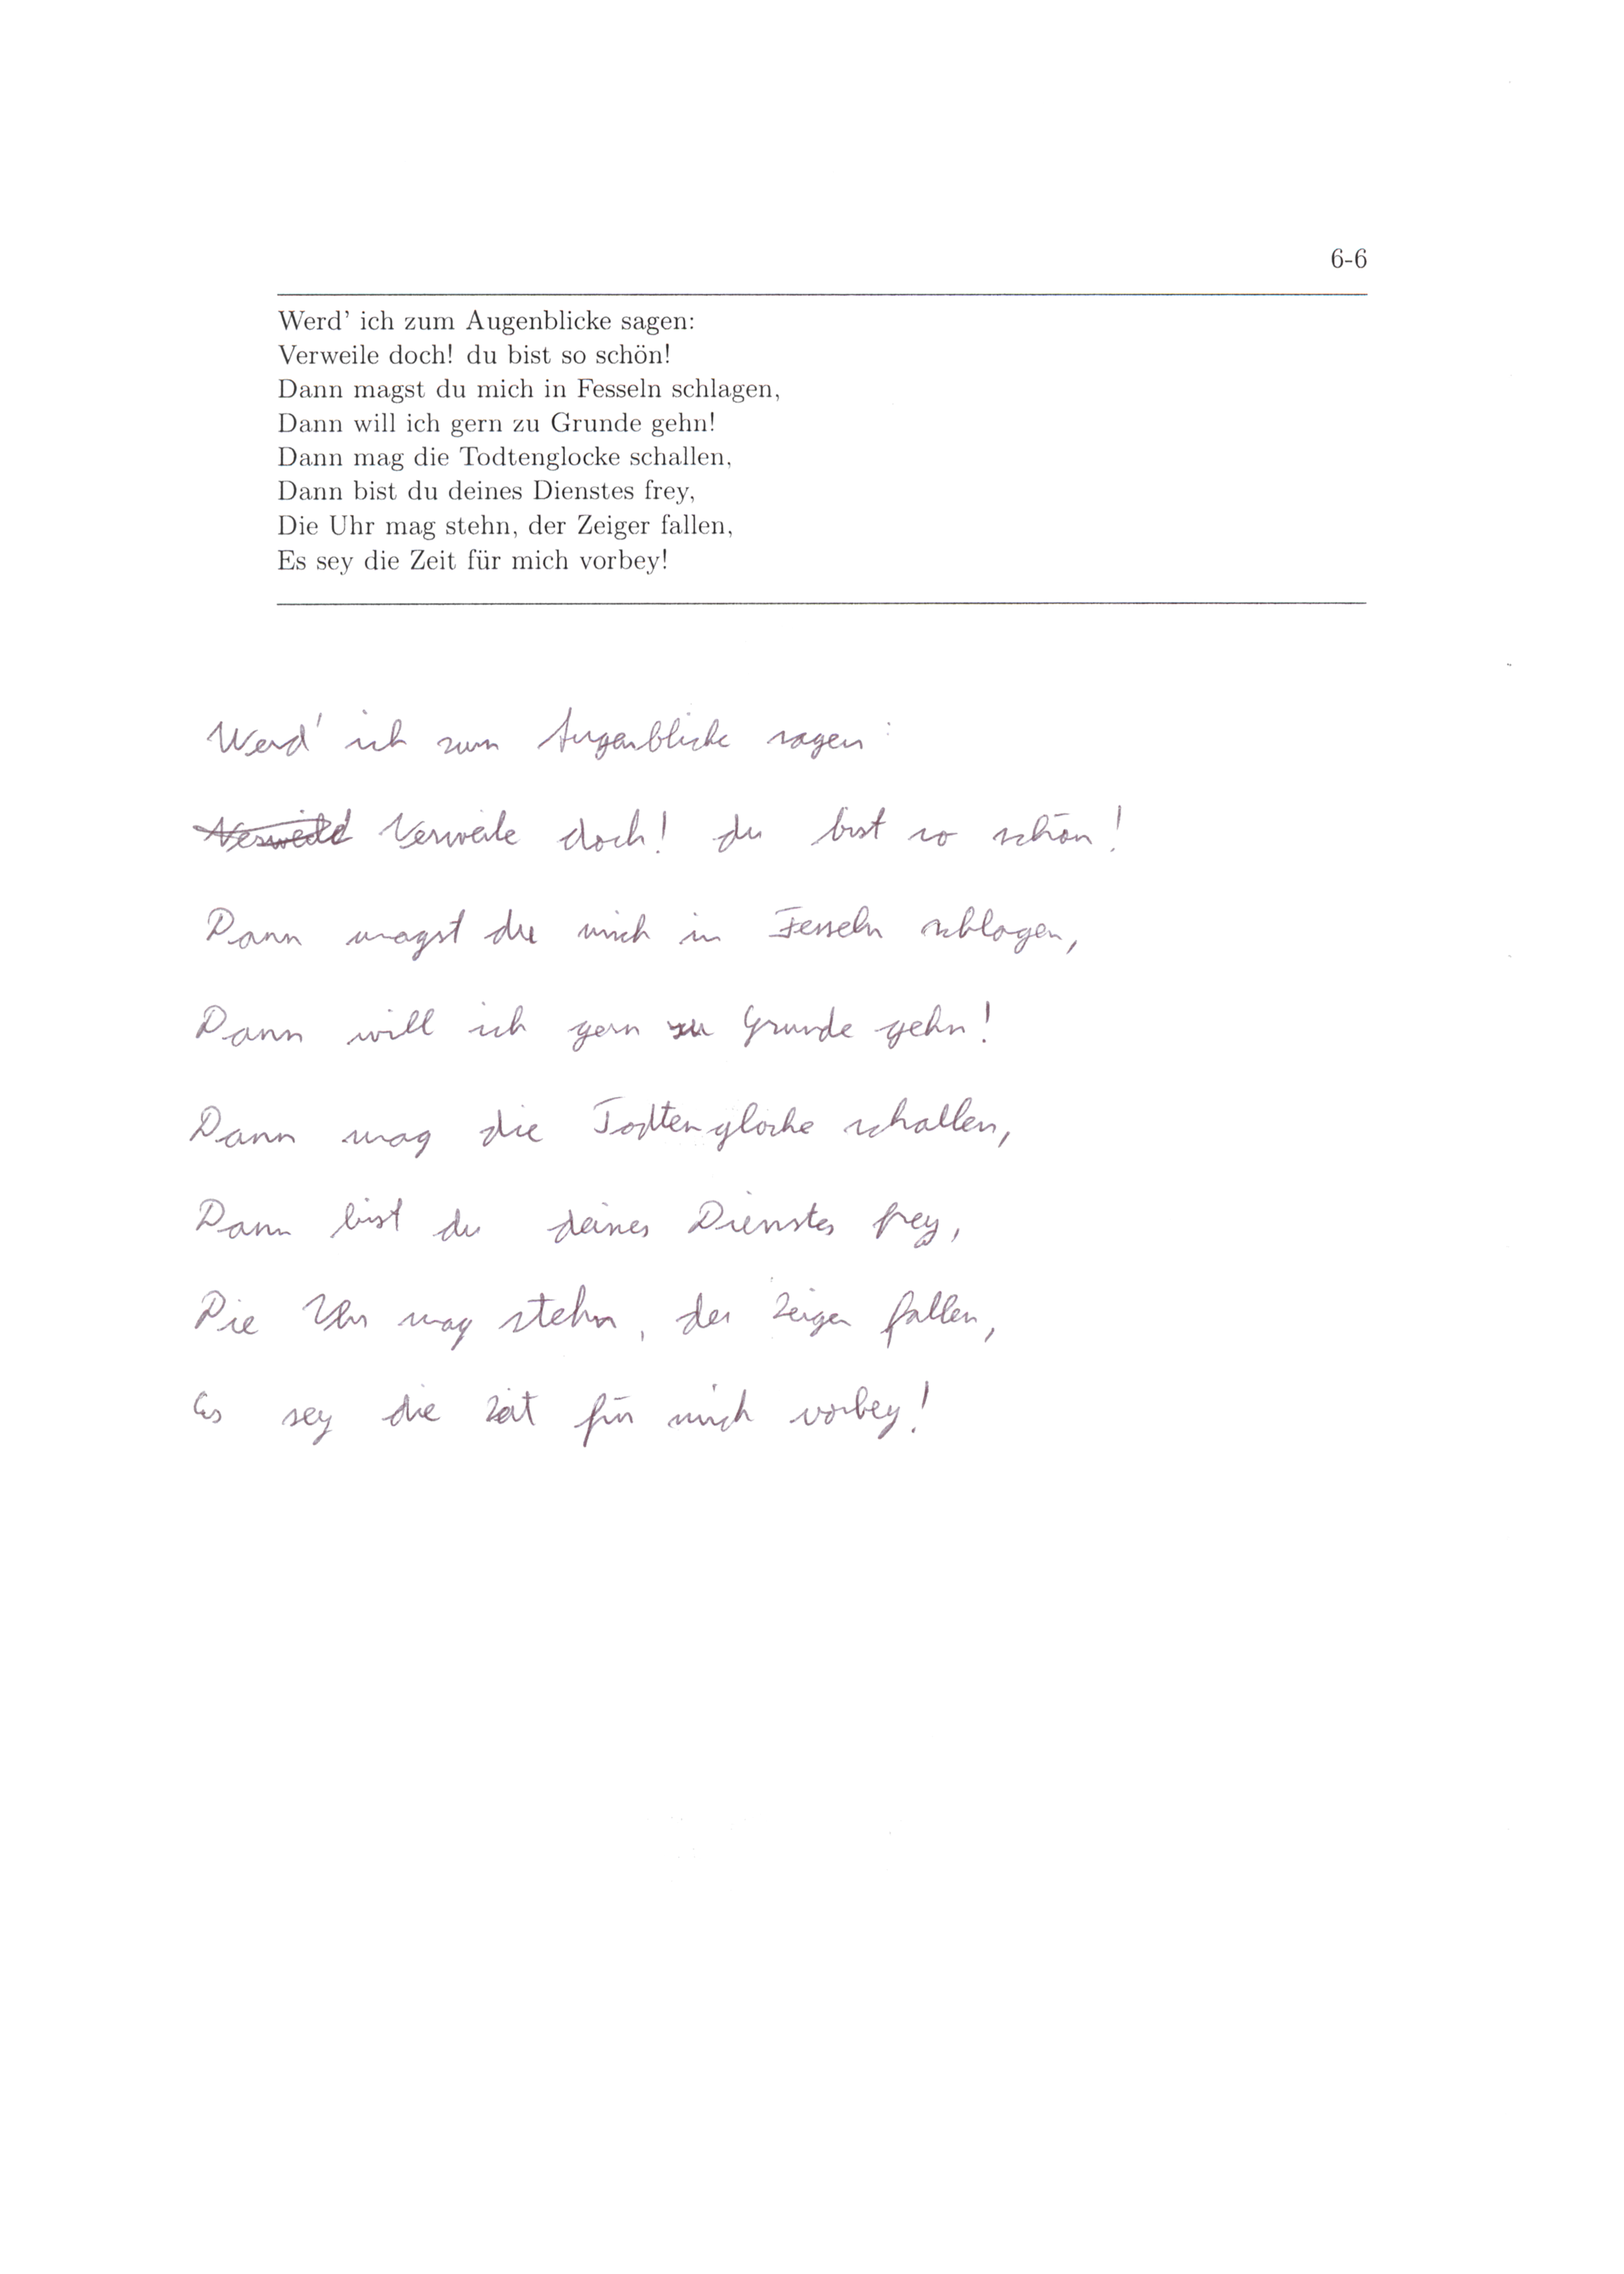 6-6
Werd' ich zum Augenblicke sagen:
Verweile doch! du bist so schön!
Dann magst du mich in Fesseln schlagen,
Dann will ich gern zu Grunde gehn!
Dann mag die Todtenglocke schallen,
Dann bist du deines Dienstes frey,
Die Uhr mag stehn, der Zeiger fallen,
Es sey die Zeit für mich vorbey!
Werd' ich zum Augenblicke sagen:
Verweile doch! du bist so schön!
Dann magst du mich in Fesseln schlagen,
Dann will ich gern zu Grunde gehn!
Dann mag die Todtenglocke schallen,
Dann bist du deines Dienstes frey,
Die Uhr mag stehn, der Zeiger fallen,
Es sey die Zeit für mich vorbey!